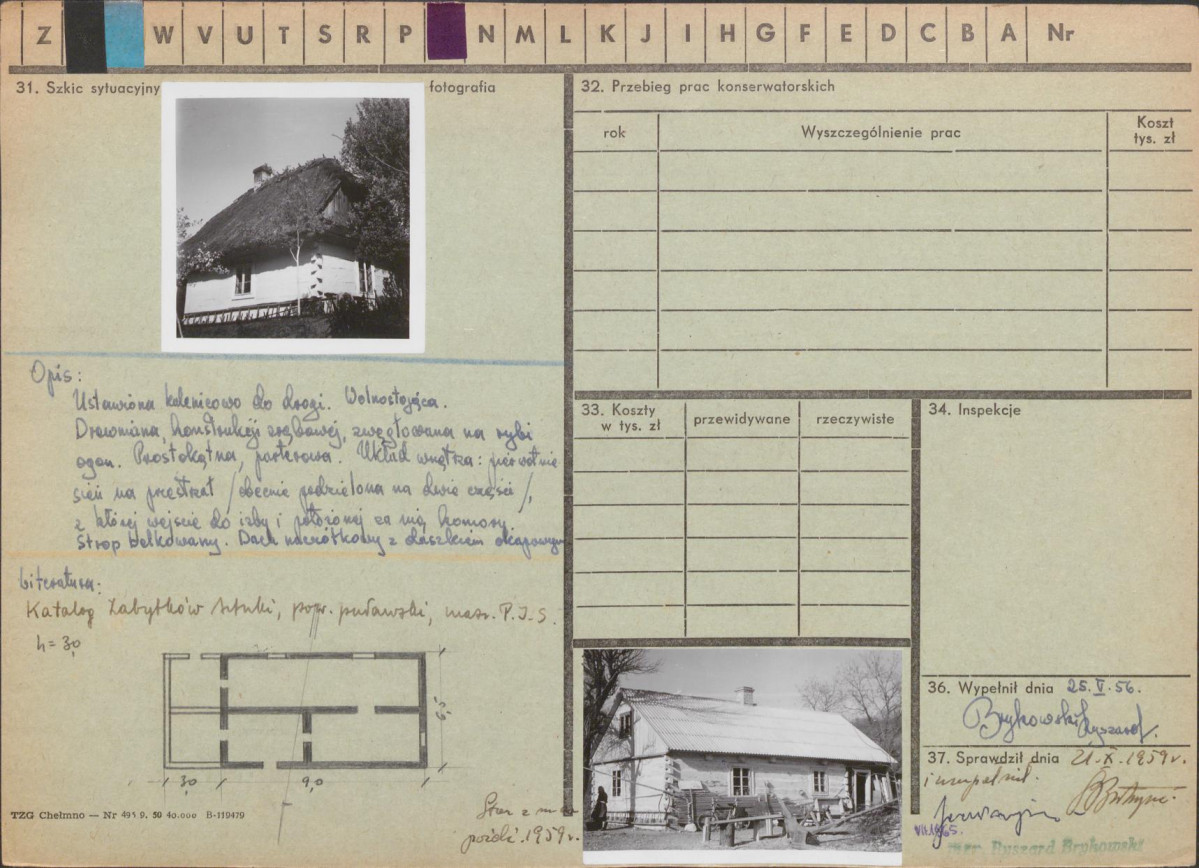 Z W V U T S R P N M L K J I H G F E D C B A Nr
31. Szkic sytuacyjny fotografia
Opis:
Ustawiona kalenicowo do drogi. Wolnostojąca.
Drewniana, konstrukcji zrębowej, zwęgłowana na rybi
ogon. Prostokątna, parterowa. Układ wnętrza: pierwotnie
sień na przestrzał /obecnie podzielona na dwie części/,
z której wejście do izby i położonej za nią komory.
Strop belkowany. Dach naczółkowy z daszkiem okapowym
Literatura:
Katalog Zabytków Sztuki, pow. puławski, masz. P.I.S.
h=3,0
6,5
3,0 9,0
TZG Chełmno — Nr 9. 50 40.000 B-119479
Stan z
1959 r.
32. Przebieg prac konserwatorskich
rok Wyszczególnienie prac Koszt
tys. zł
33. Koszty
w tys. zł przewidywane rzeczywiste
34. Inspekcje
36. Wypełnił dnia 25.V.56.
Brykowski Ryszard.
37. Sprawdził dnia 21.X.1959 r.
i uzupełnił.
VII.1965.
mgr. Ryszard Brykowski